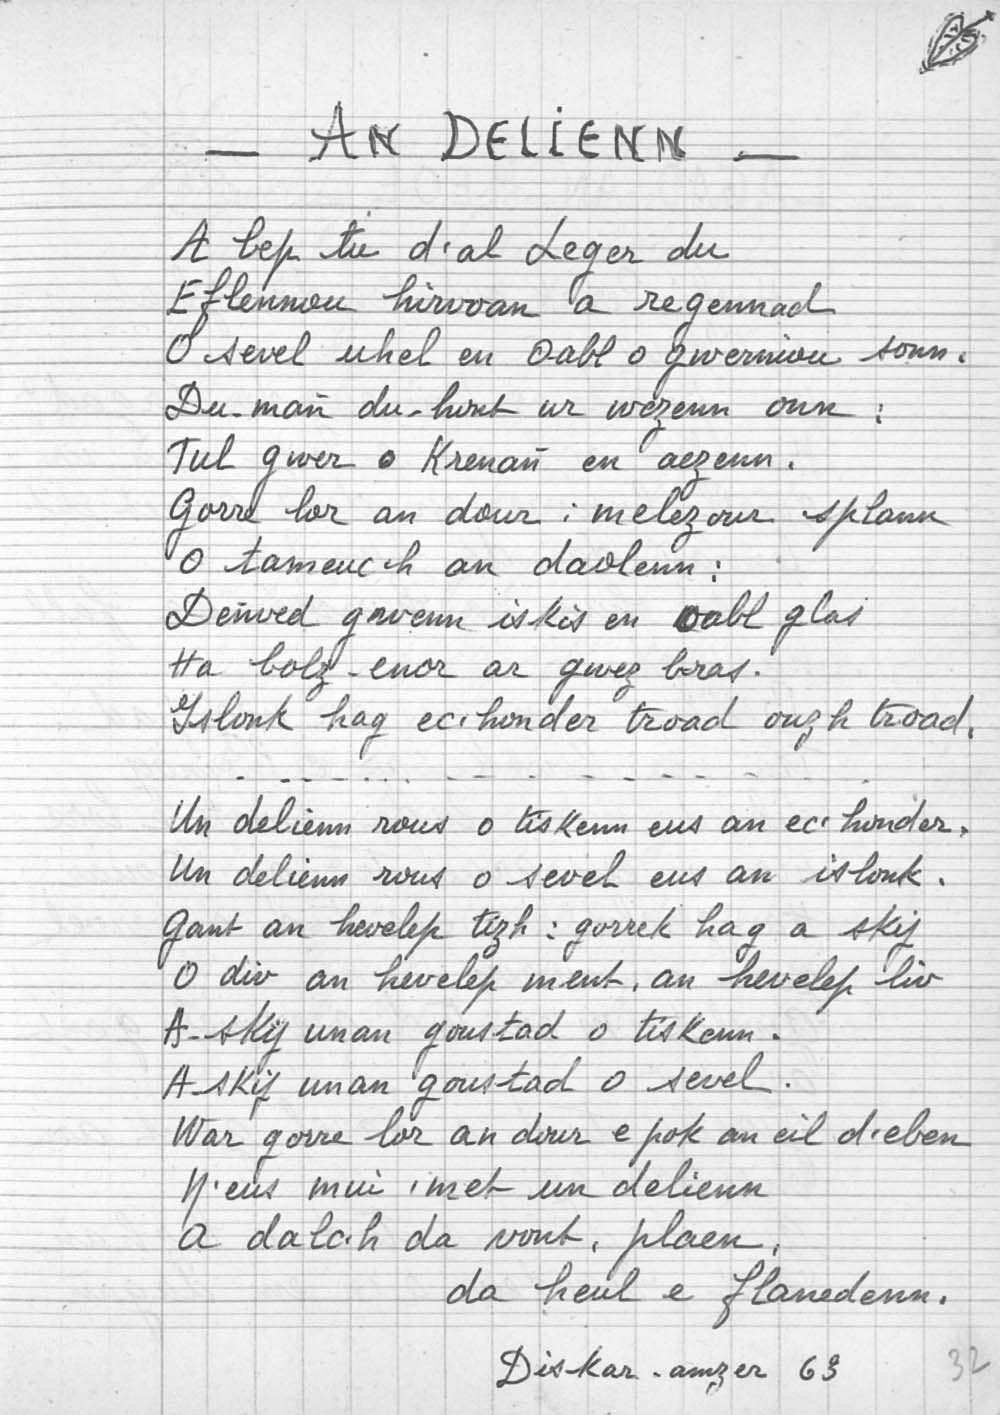 — AN DELIENN —
A bep tu d'al Leger du
Eflennou hirvoan a regennad
O sevel uhel en oabl o gwerniou sonn.
Du-mañ du-hont ur wezenn onn :
Tul gwer o Krenañ en aezenn.
Gorre lor an dour : melezour splann
O tameuc'h an daolenn :
Deñved gwenn iskis en oabl glas
Ha bolz-enor ar gwez bras.
Islonk hag ec'honder troad ouzh troad.
Un delienn rous o tiskenn eus an ec'honder,
Un delienn rous o sevel eus an islonk.
Gant an hevelep tizh : gorrek hag a skij
O div an hevelep ment, an hevelep liv
A-skij unan goustad o tiskenn.
A skij unan goustad o sevel.
War gorre lor an dour e pok an eil d'eben
N'eus mui 'met un delienn
A dalc'h da vont, plaen,
da heul e flanedenn.
Diskar-amzer 63
32